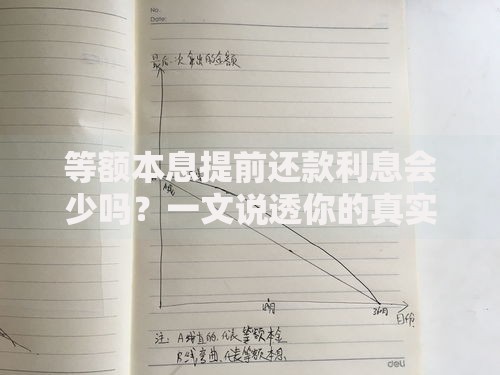 No.
Date:
最后一次拿出的金额
等额本息提前还款利息会
少吗？一文说透你的真实
A线
36月
月份
注: A线直的,代表等额本金
B线弯曲,代表等额本息.
deli